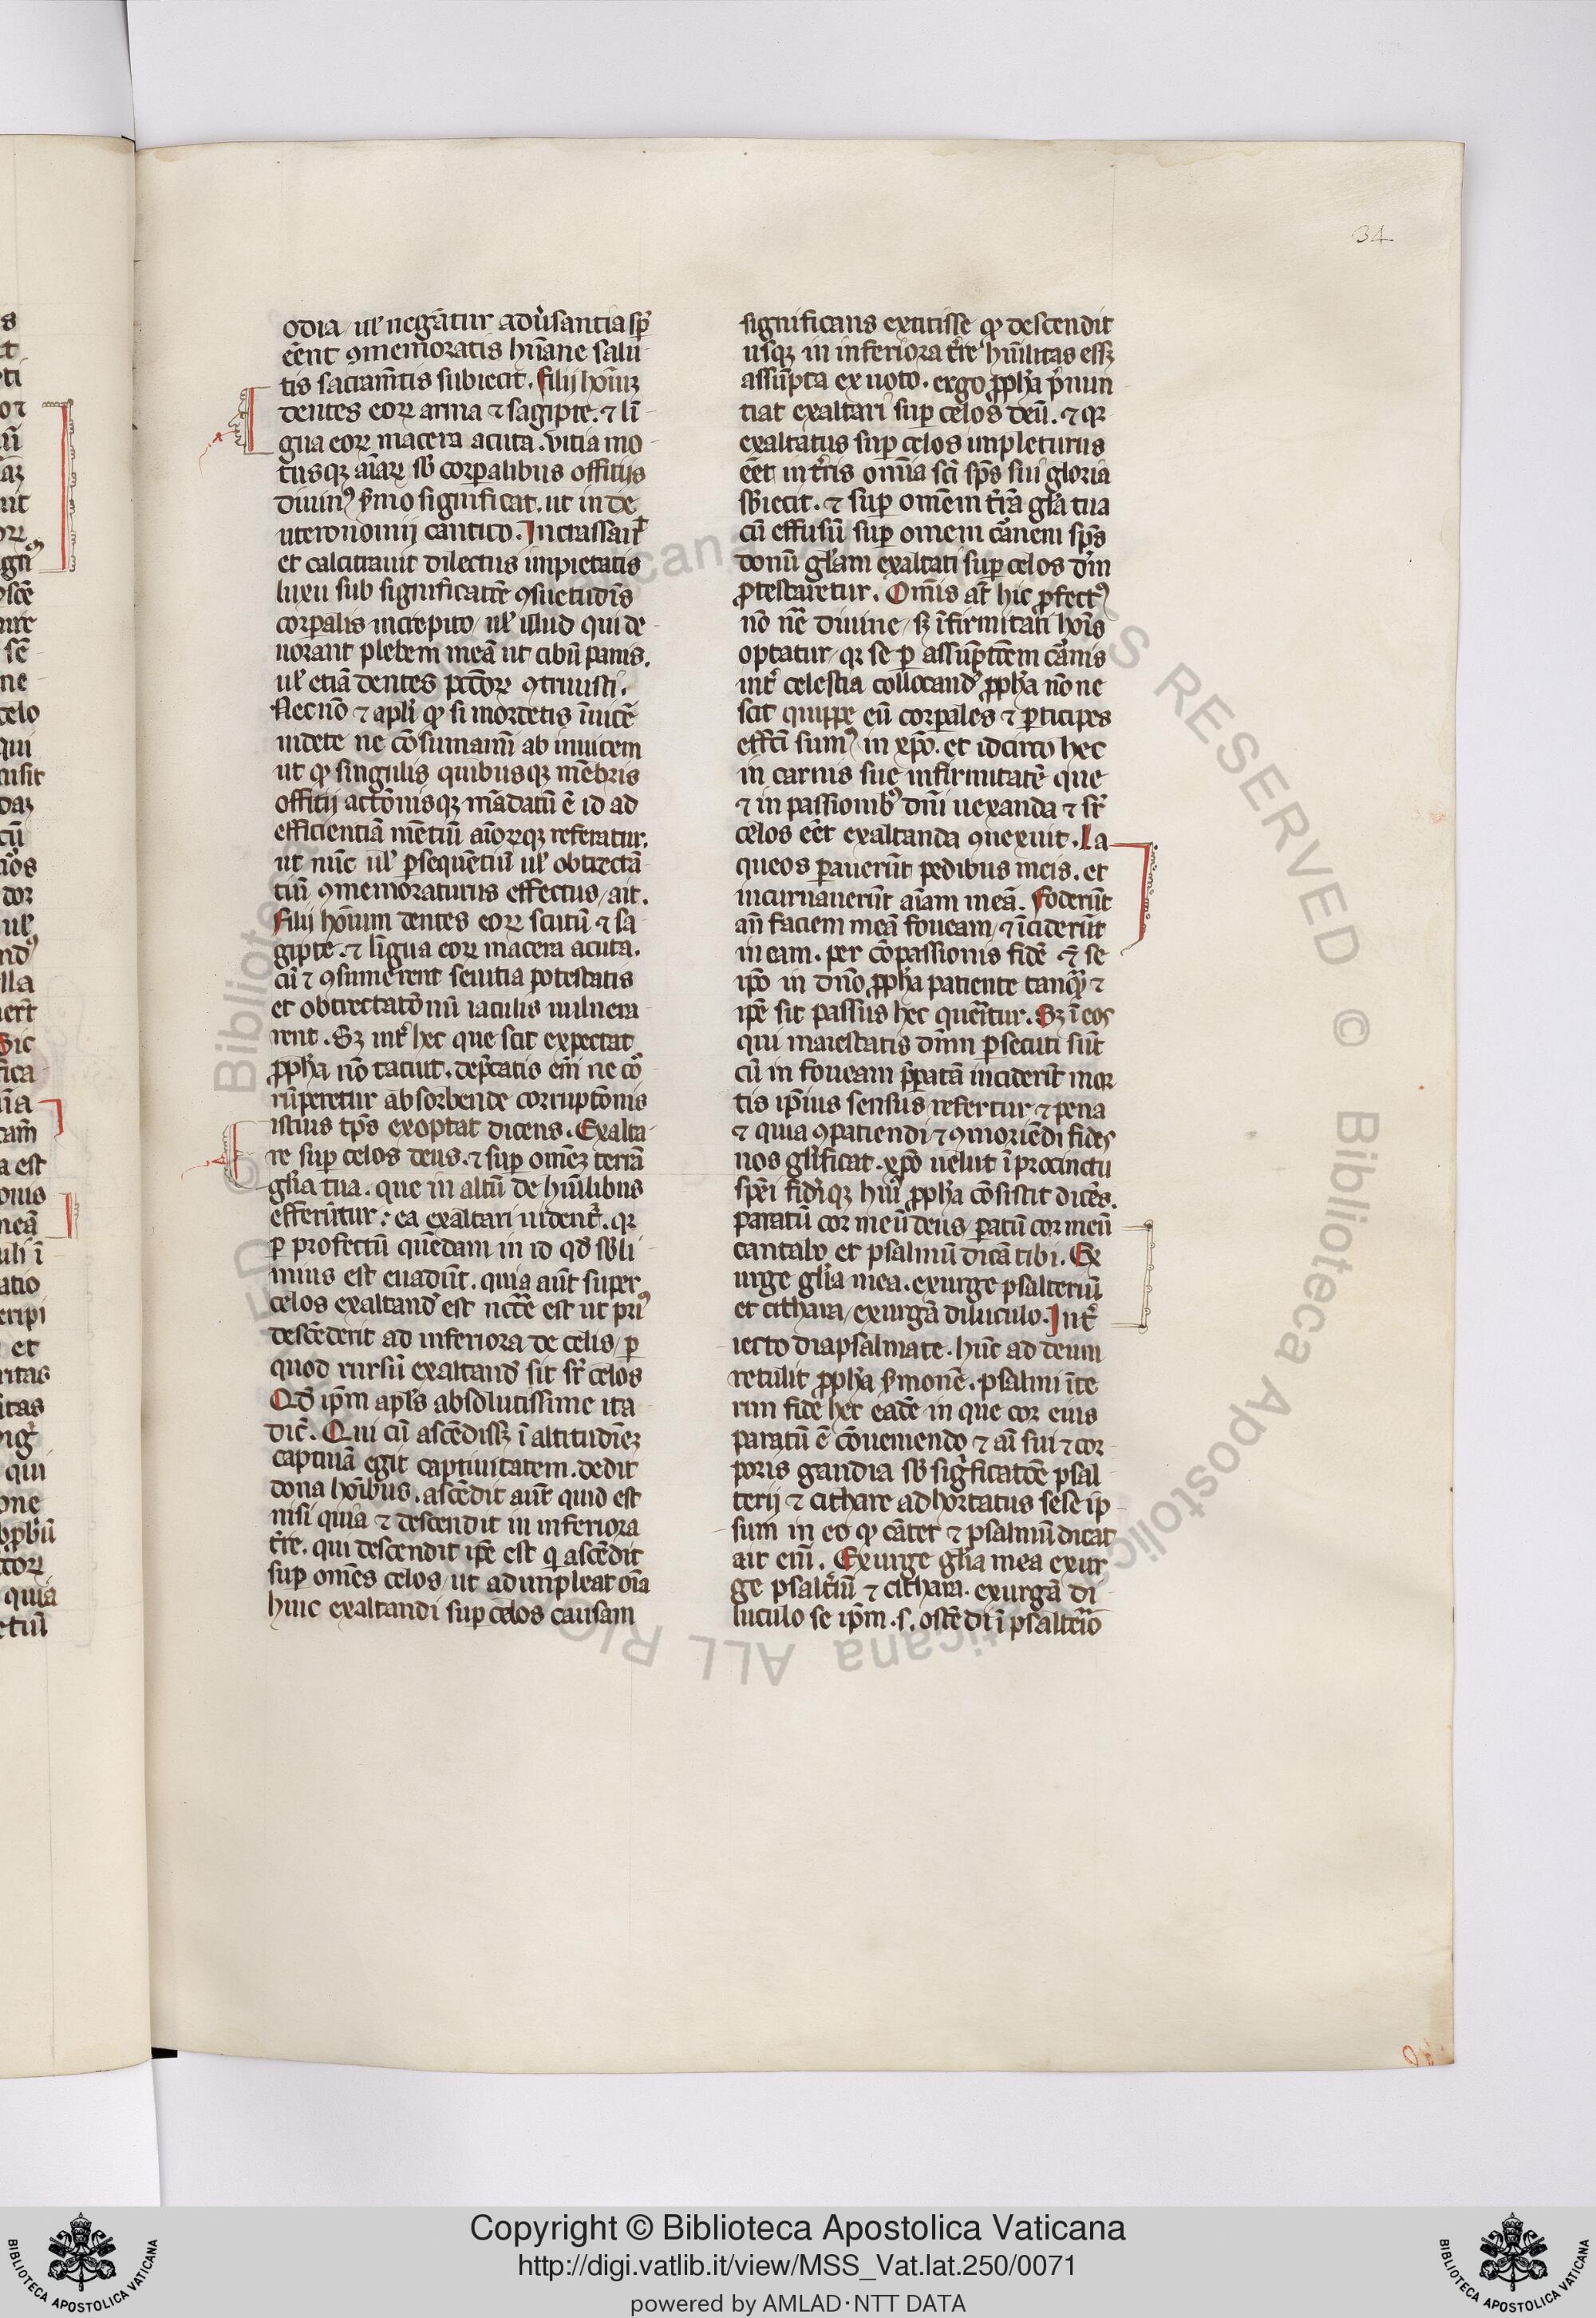 34
odia ul̕ negãtur adũsantia sp̃
eẽnt ꝯmemoratis hũane salu
tis sacram̃tis subiecit. filij hoĩuꝫ
dentes eoꝝ arma ⁊ sagipte. ⁊ lĩ
gua eoꝝ macera acuta. vitia mo
tusqꝫ aĩaꝝ sb̕ corꝑalibus offitijs
diuinꝰ ẜmo significat. ut in de
uteronomij cantico. Incrassat᷑
et calcitrauit dilectus impietatis
luxu sub significatõe ꝯsuetudĩs
corꝑalis increpito ul̕ illud qui de
uorant plebem meã ut cibũ panis.
ul̕ etiã dentes pctõꝝ ꝯtriuisti.
Nec nõ ⁊ apl̕i ꝙ si mordetis ĩuicẽ
uidete ne cõsumam̃ ab inuicem
ut ꝙ singulis quibusqꝫ mẽbris
offitij actõnisqꝫ mãdatũ ẽ id ad
efficientiã mẽtiũ aĩoꝝqꝫ referatur.
ut nũc ul̕ ꝑsequẽtiũ ul̕ obtrectã
tiũ ꝯmemoraturus effectus ait.
filij hoĩum dentes eoꝝ scutũ ⁊ sa
gipte. ⁊ lĩgua eoꝝ macera acuta.
cũ ⁊ ꝯsumerent seuitia potestatis
et obtrectatõnũ iaculis uulnera
rent. Sꝫ int̕ hec que scit expectat
ꝓph̕a nõ tacuit. dep̃catis em̃ ne cõ
rũperetur absorbende corruptõnis
istius tp̃s exoptat dicens. Exalta
re suꝑ celos deus. ⁊ suꝑ omẽꝫ terrã
gl̕ia tua. que in altũ de hũilibus
efferũtur: ea exaltari uident᷑. qꝛ
ꝑ profectũ quẽdam in id qd̕ sb̕li
mius est euadũt. quia aũt super
celos exaltandꝰ est ncc̃e est ut priꝰ
descẽderit ad inferiora de celis ꝑ
quod rursũ exaltandꝰ sit sr̕ celos
Qd̕ ip̃m apl̕s absolutissime ita
dic̃. Qui cũ ascẽdissꝫ ĩ altitudĩeꝫ
captiuã egit captiuitatem. dedit
dona hoĩbus. ascẽdit aũt quid est
nisi quia ⁊ descendit in inferiora
tr̃e. qui descendit ip̃e est q̕ ascẽdit
suꝑ omẽs celos ut adimpleat oĩa
huic exaltandi suꝑ celos causam
significans extitisse ꝙ descendit
usqꝫ in inferiora tr̃e hũilitas essꝫ
assũpta ex uoto. ergo ꝓph̕a p̃nun
tiat exaltari suꝑ celos deũ. ⁊ qꝛ
exaltatus suꝑ celos impleturus
eẽt in tr̃is omĩa sc̃i sp̃s sui gloria
sb̕iecit. ⁊ suꝑ omẽm tr̃ã gl̕a tua
cũ effusũ suꝑ omem cãnem sp̃s
donũ gl̕am exaltati suꝑ celos dñi
ꝓtestaretur. Omĩs at̃ hic ꝓfectꝰ
nõ nẽ diuine sꝫ ĩfirmitati hoĩs
optatur qꝛ se ꝑ assũptõem cãnis
int̕ celestia collocandꝰ ꝓph̕a nõ ne
scit quippe eũ corꝑales ⁊ ꝑticipes
effc̃i sumꝰ in xp̃o. et idcirco hec
in carnis sue infirmitatẽ que
⁊ in passionibꝰ dñi uexanda ⁊ sr̕
celos eẽt exaltanda ꝯnexuit. La
queos ꝑauerũt pedibus meis. et
incuruauerũt aĩam meã. foderũt
añ faciem meã foueam ⁊ ĩciderũt
in eam. per cõpassionis fidẽ ⁊ se
ip̃o in dño ꝓph̕a patiente tanqã ⁊
ip̃e sit passus hec querĩtur. Sꝫ ĩ eos
qui maiestatis dñm ꝑsecuti sũt
cũ in foueam p̃ꝑatã incider̃t mor
tis ip̃ius sensus refertur ⁊ pena
⁊ quia ꝯpatiendi ⁊ ꝯmoriẽdi fides
nos gl̕ificat. xp̃o uelut ĩ procinctu
sp̃ei fideĩqꝫ huiꝰ ꝓph̕a cõsistit dicẽs.
paratũ cor meũ deus ꝑatũ cor meũ
cantabo et psalmũ dicã tibi. Ex
urge gl̕ia mea. exurge psalteriũ
et cithara exurgã diluculo. Int̕
iecto diapsalmate. hũc ad deum
retulit ꝓph̕a ẜmonẽ. psalmi ĩte
rim fidẽ hec eadẽ in que cor eius
paratũ ẽ cõueniendo ⁊ aĩ sui ⁊ cor
poris gaudia sb̕ sig̕ficatõe psal
terij ⁊ cithare adhortatus sese ip̃
sum in eo ꝙ cãtet ⁊ psalmũ dicat
ait em̃. Exurge gl̕ia mea exur
ge psalt̕iũ ⁊ cithara. exurgã di
luculo se ip̃m .s. ostẽdi ĩ psalterĩo
Copyright © Biblioteca Apostolica Vaticana
http://digi.vatlib.it/view/MSS_Vat.lat.250/0071
powered by AMLAD·NTT DATA
BIBLIOTECA APOSTOLICA VATICANA
BIBLIOTECA APOSTOLICA VATICANA